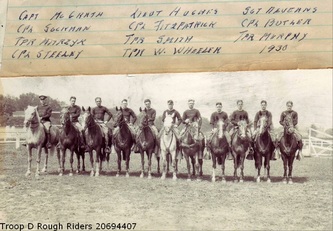 Capt McGrath Lieut Hughes Sgt Allegans
Cpl Sockman Cpl Fitzpatrick Cpl Butler
Tpr Smith Tpr Murphy
Cpl Steeley Tpr W. Wheeler 1930
Troop D Rough Riders 20694407